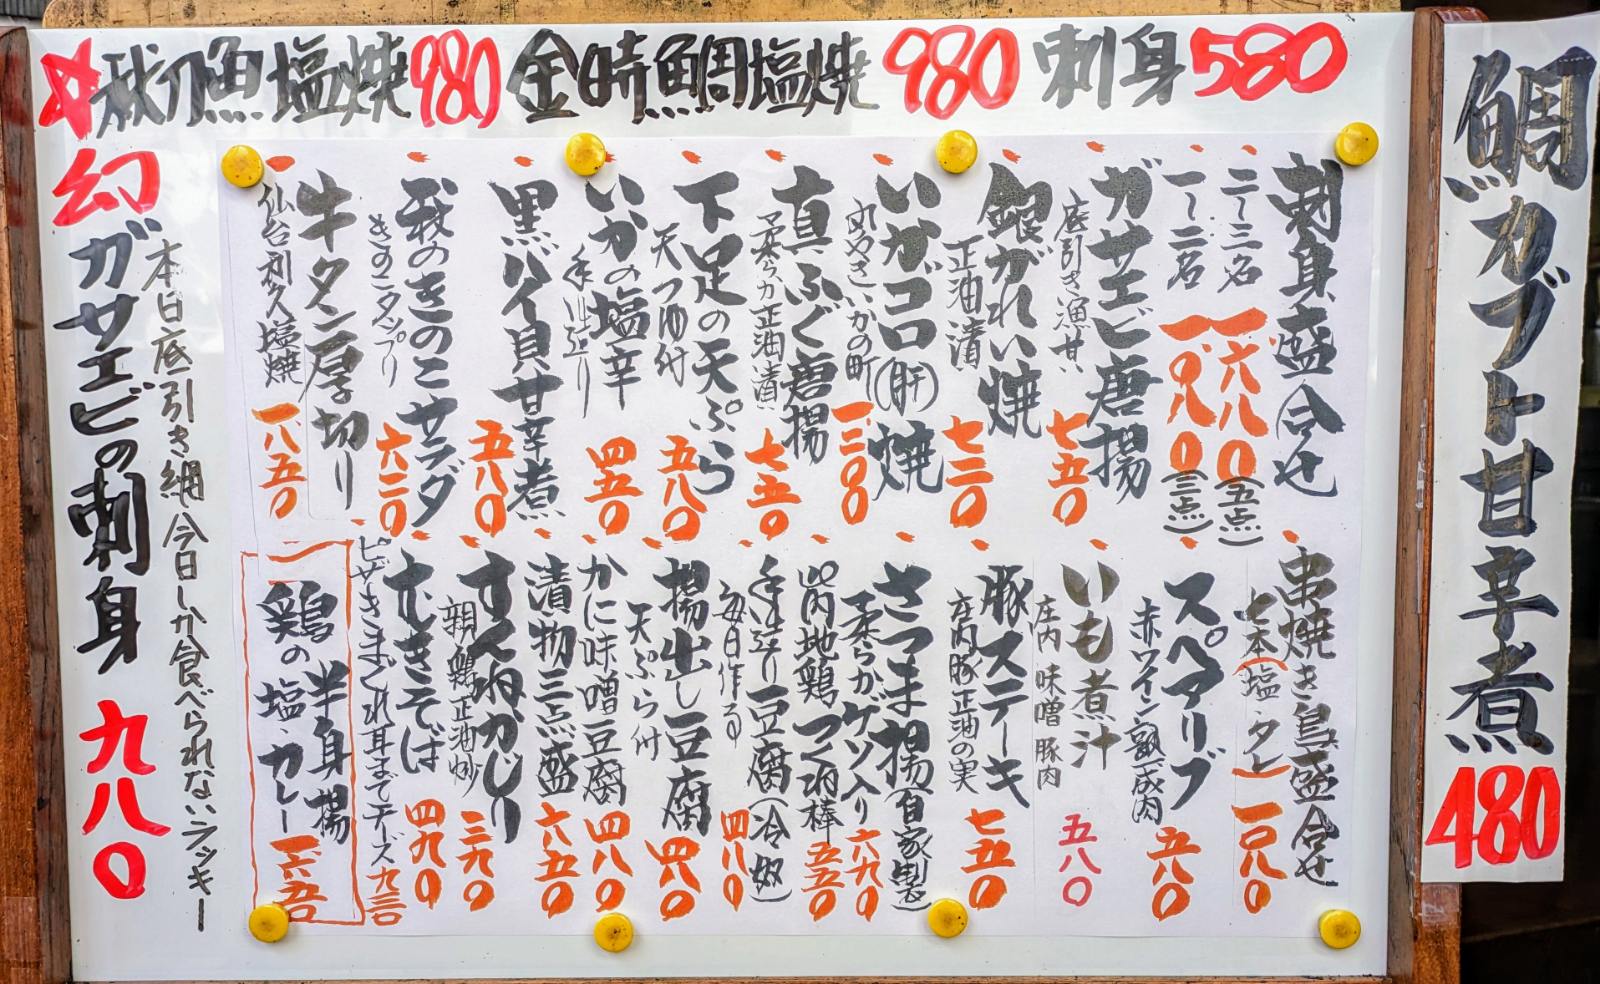 秋刀魚塩焼 980 金時鯛塩焼 980 刺身 580
鯛カブト甘辛煮 480
刺身盛合せ
二〜三名 一六八〇(五点)
一〜二名 一〇八〇(三点)
ガサエビ唐揚
底引き漁 七五〇
銀がれい焼
正油漬 七二〇
いかゴロ(肝)焼
いかの町 一三〇〇
真ふぐ唐揚
柔らか正油漬 七五〇
下足の天ぷら
天つゆ付 五八〇
いかの塩辛
手作り 四五〇
黒バイ貝甘辛煮 五八〇
秋のきのこサラダ
きのこタップリ 六二〇
牛タン厚切り
仙台利久塩焼 一八五〇
串焼き鳥盛合せ
七本(塩・タレ) 一〇八〇
スペアリブ
赤ワイン熟成肉 五八〇
いも煮汁
庄内 味噌 豚肉 五八〇
豚ステーキ
庄内豚正油の実 七五〇
さつま揚(自家製)
柔らかゲソ入り 六九〇
山内地鶏つくね棒 五五〇
手作り豆腐(冷奴)
毎日作る 四八〇
揚出し豆腐
天ぷら付 四八〇
かに味噌豆腐 四八〇
漬物三点盛 六五〇
すねかじり
親鶏正油炒 三九〇
むきそば 四九〇
ピザきまぐれ耳までチーズ 九三〇
鶏 半身揚
の塩・カレー 一六五〇
本日底引き網今日しか食べられないラッキー
幻 ガサエビの刺身 九八〇